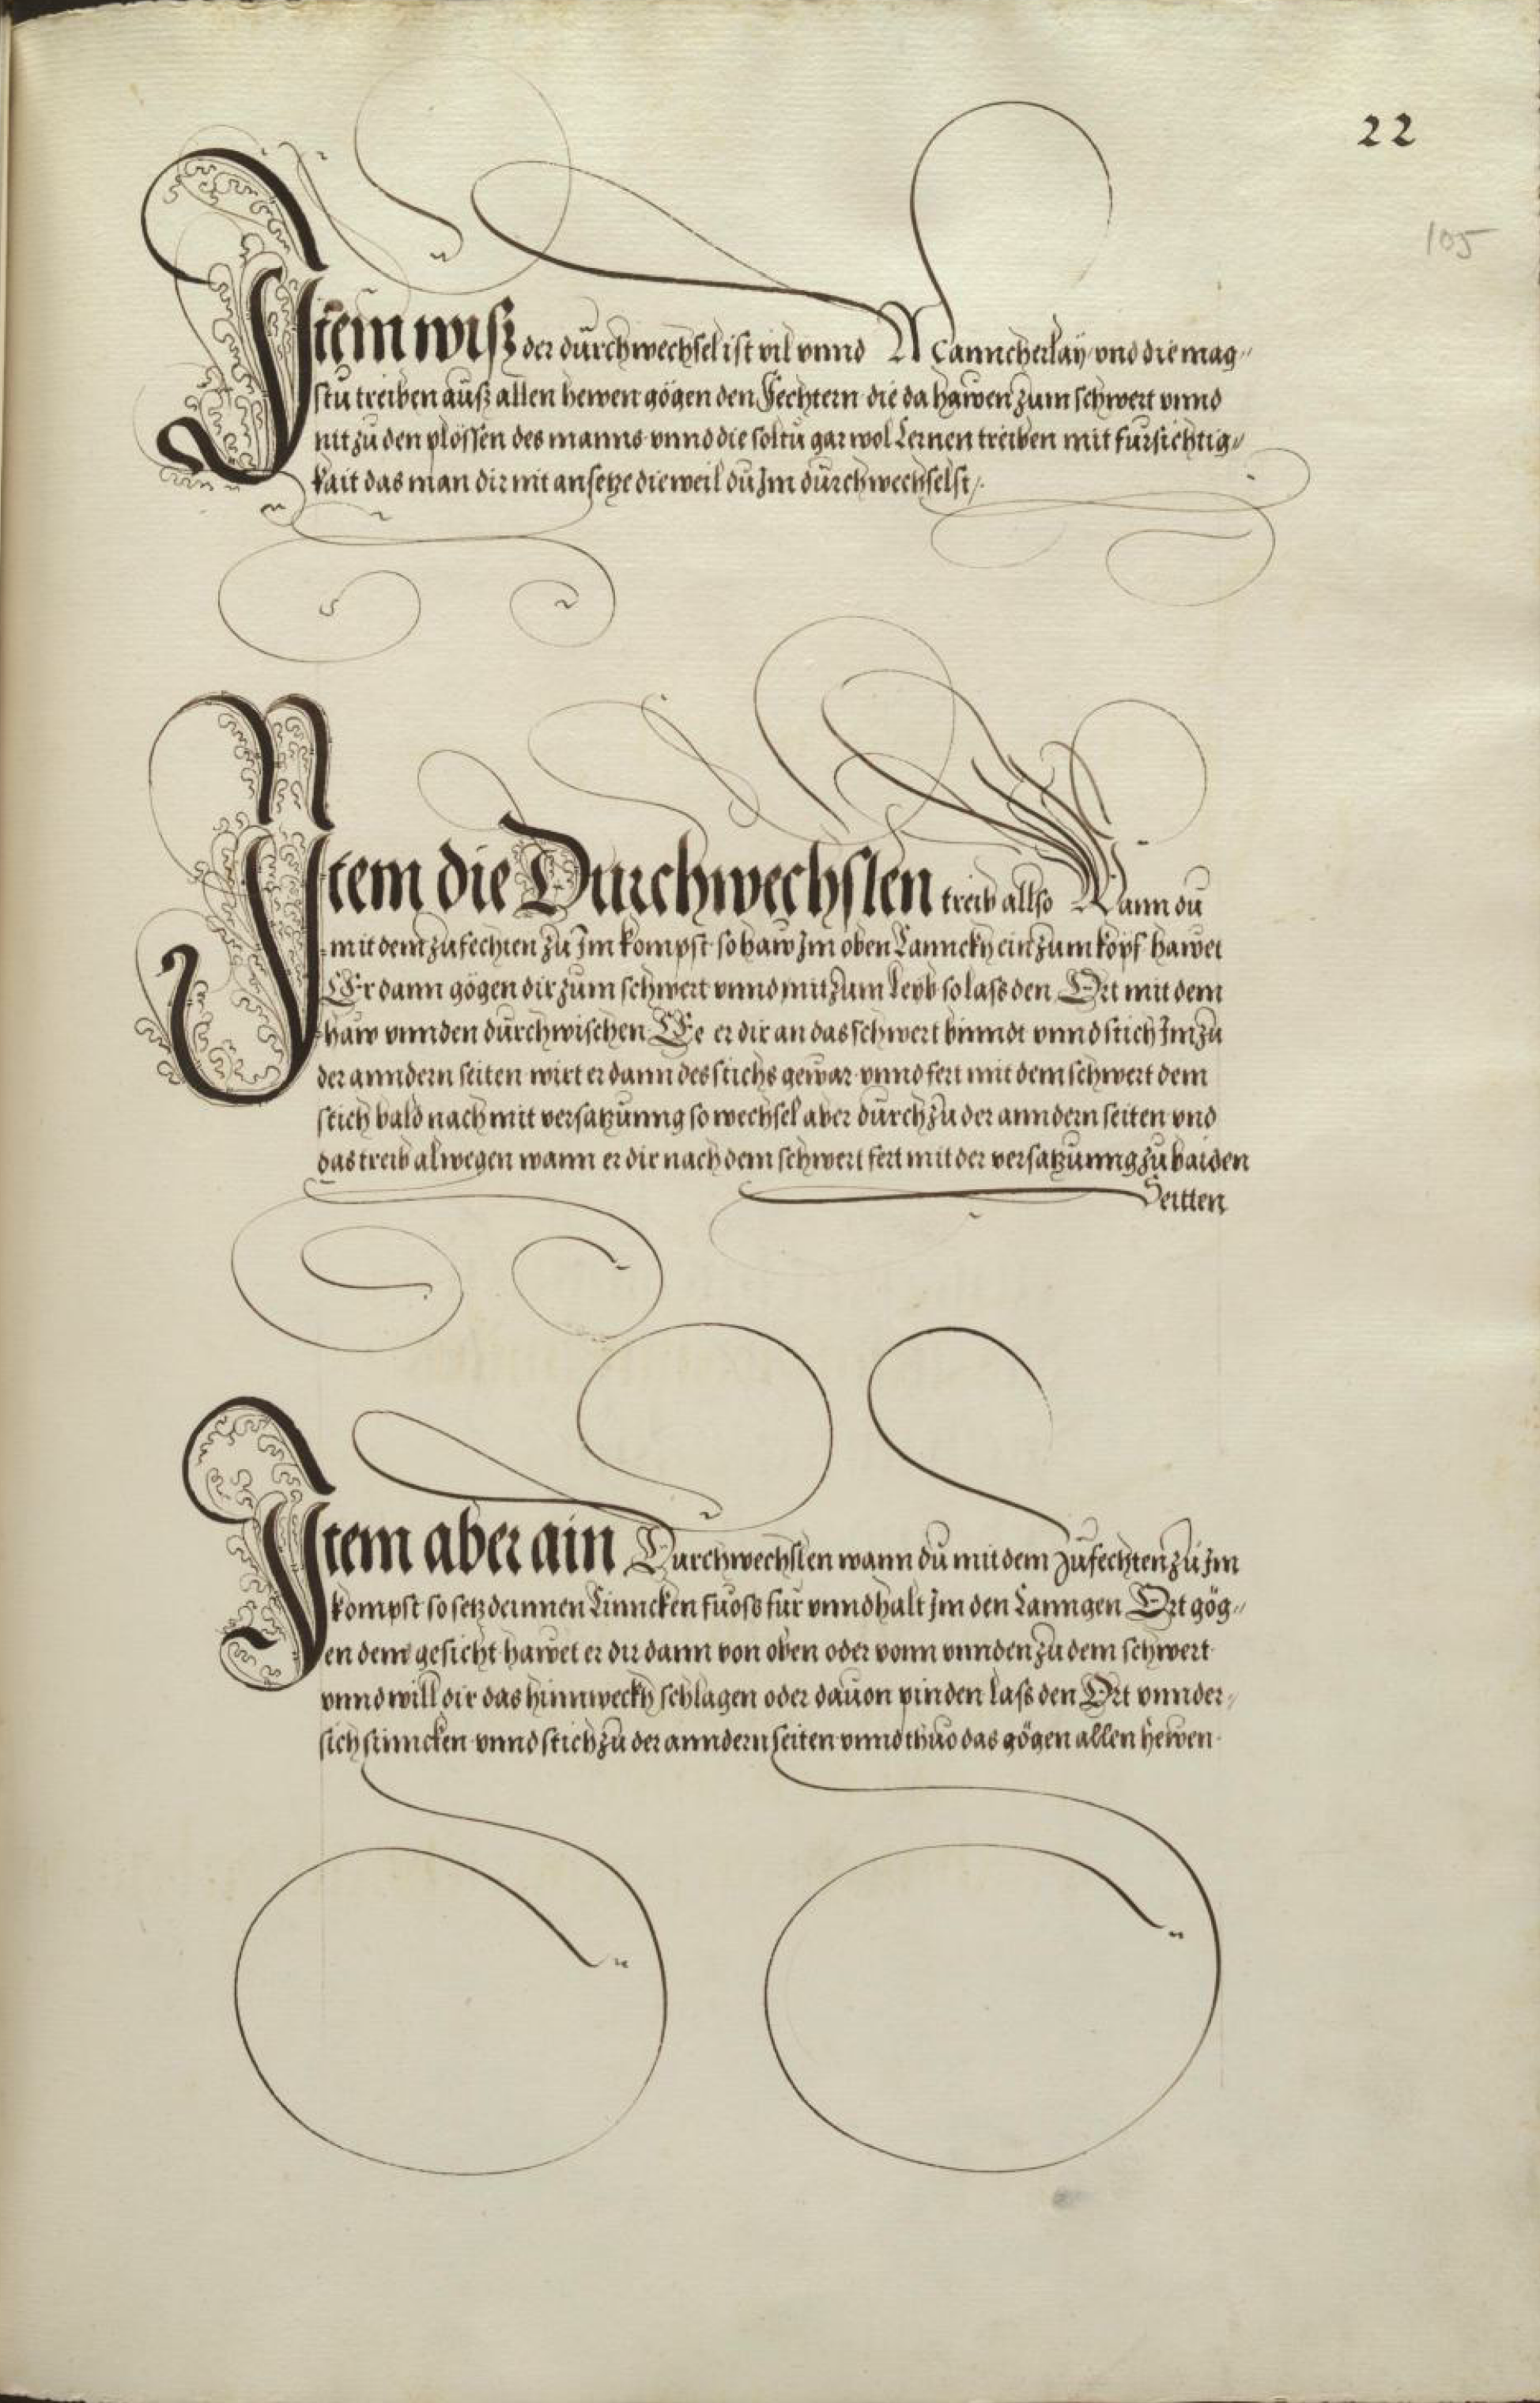 22
105
Item wiß der durchwechsel ist vil vnnd Manncherlay vnd die mag-
stu treiben aüß allen hewen gögen den Fechtern die da hawen zum schwert vnnd
nit zu den plössen des manns vnnd die soltu gar wol Lernen treiben mit fürsichtig-
kait das man dir mit ansetze die weil du Im dürchwechselst /.
Item die Durchwechslen treib allso Wann du
mit dem zufechten zu Im kompst so haw Im oben Lannckh ein zum kopf hawet
Er dann gögen dir zum schwert vnnd mit zum leyb so lass den Ort mit dem
haw vnnden dürchwischen Ee er dir an das schwert binndt vnnd stich Im zu
der anndern seiten wirt er dann des stichs gewar vnnd fert mit dem schwert dem
stich bald nach mit versatzunng so wechsel aber dürch zu der anndern seiten vnd
das treib alwegen wann er dir nach dem schwert fert mit der versatzunng zu baiden
Seitten
Item aber ain Durchwechslen wann du mit dem zufechten zu Im
kompst so setz deinnen Linncken fuoss für vnnd halt Im den Lanngen Ort gög-
en dem gesicht hawet er dir dann von oben oder vonn vnnden zu dem schwert
vnnd will dir das hinnweckh schlagen oder dauon pinden lass den Ort vnnder-
sich sinncken vnnd stich zu der anndern seiten vnnd thuo das gögen allen hewen